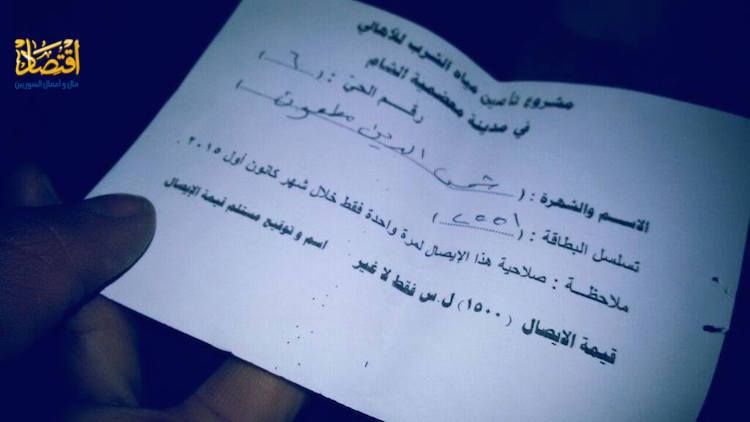 اقتصاد
مال و أعمال السوريين
مشروع تأمين مياه الشرب للأهالي
في مدينة معضمية الشام
رقم الحي : ( ٦ )
الاسم والشهرة : ( الدين )
تسلسل البطاقة : ( )
ملاحظة : صلاحية هذا الإيصال لمرة واحدة فقط خلال شهر كانون أول ٢٠١٥ .
اسم و توقيع مستلم قيمة الإيصال
قيمة الايصال (١٥٠٠) ل.س فقط لا غير